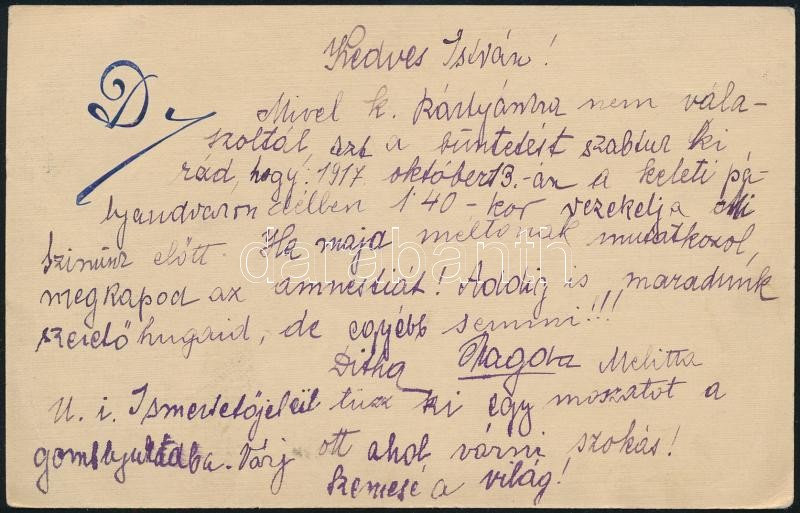 Kedves István!
D
Mivel k. kártyánkra nem vála-
szoltál, ezt a büntetést szabtuk ki
rád, hogy: 1917. október 13.-án a keleti pá-
lyaudvaron délben 1 40-kor vezekelj a mi
szinünk előtt. Ha maja méltónak mutatkozol,
megkapod az amnestiát! Addig is maradunk
szerető hugaid, de egyébb semmi!!!
Ditha Magda Melitta
U. i. Ismertetőjelül tüzz ki egy moszatot a
gomblyukadba. Várj ott ahol várni szokás!
Szemesé a világ!
darabanth